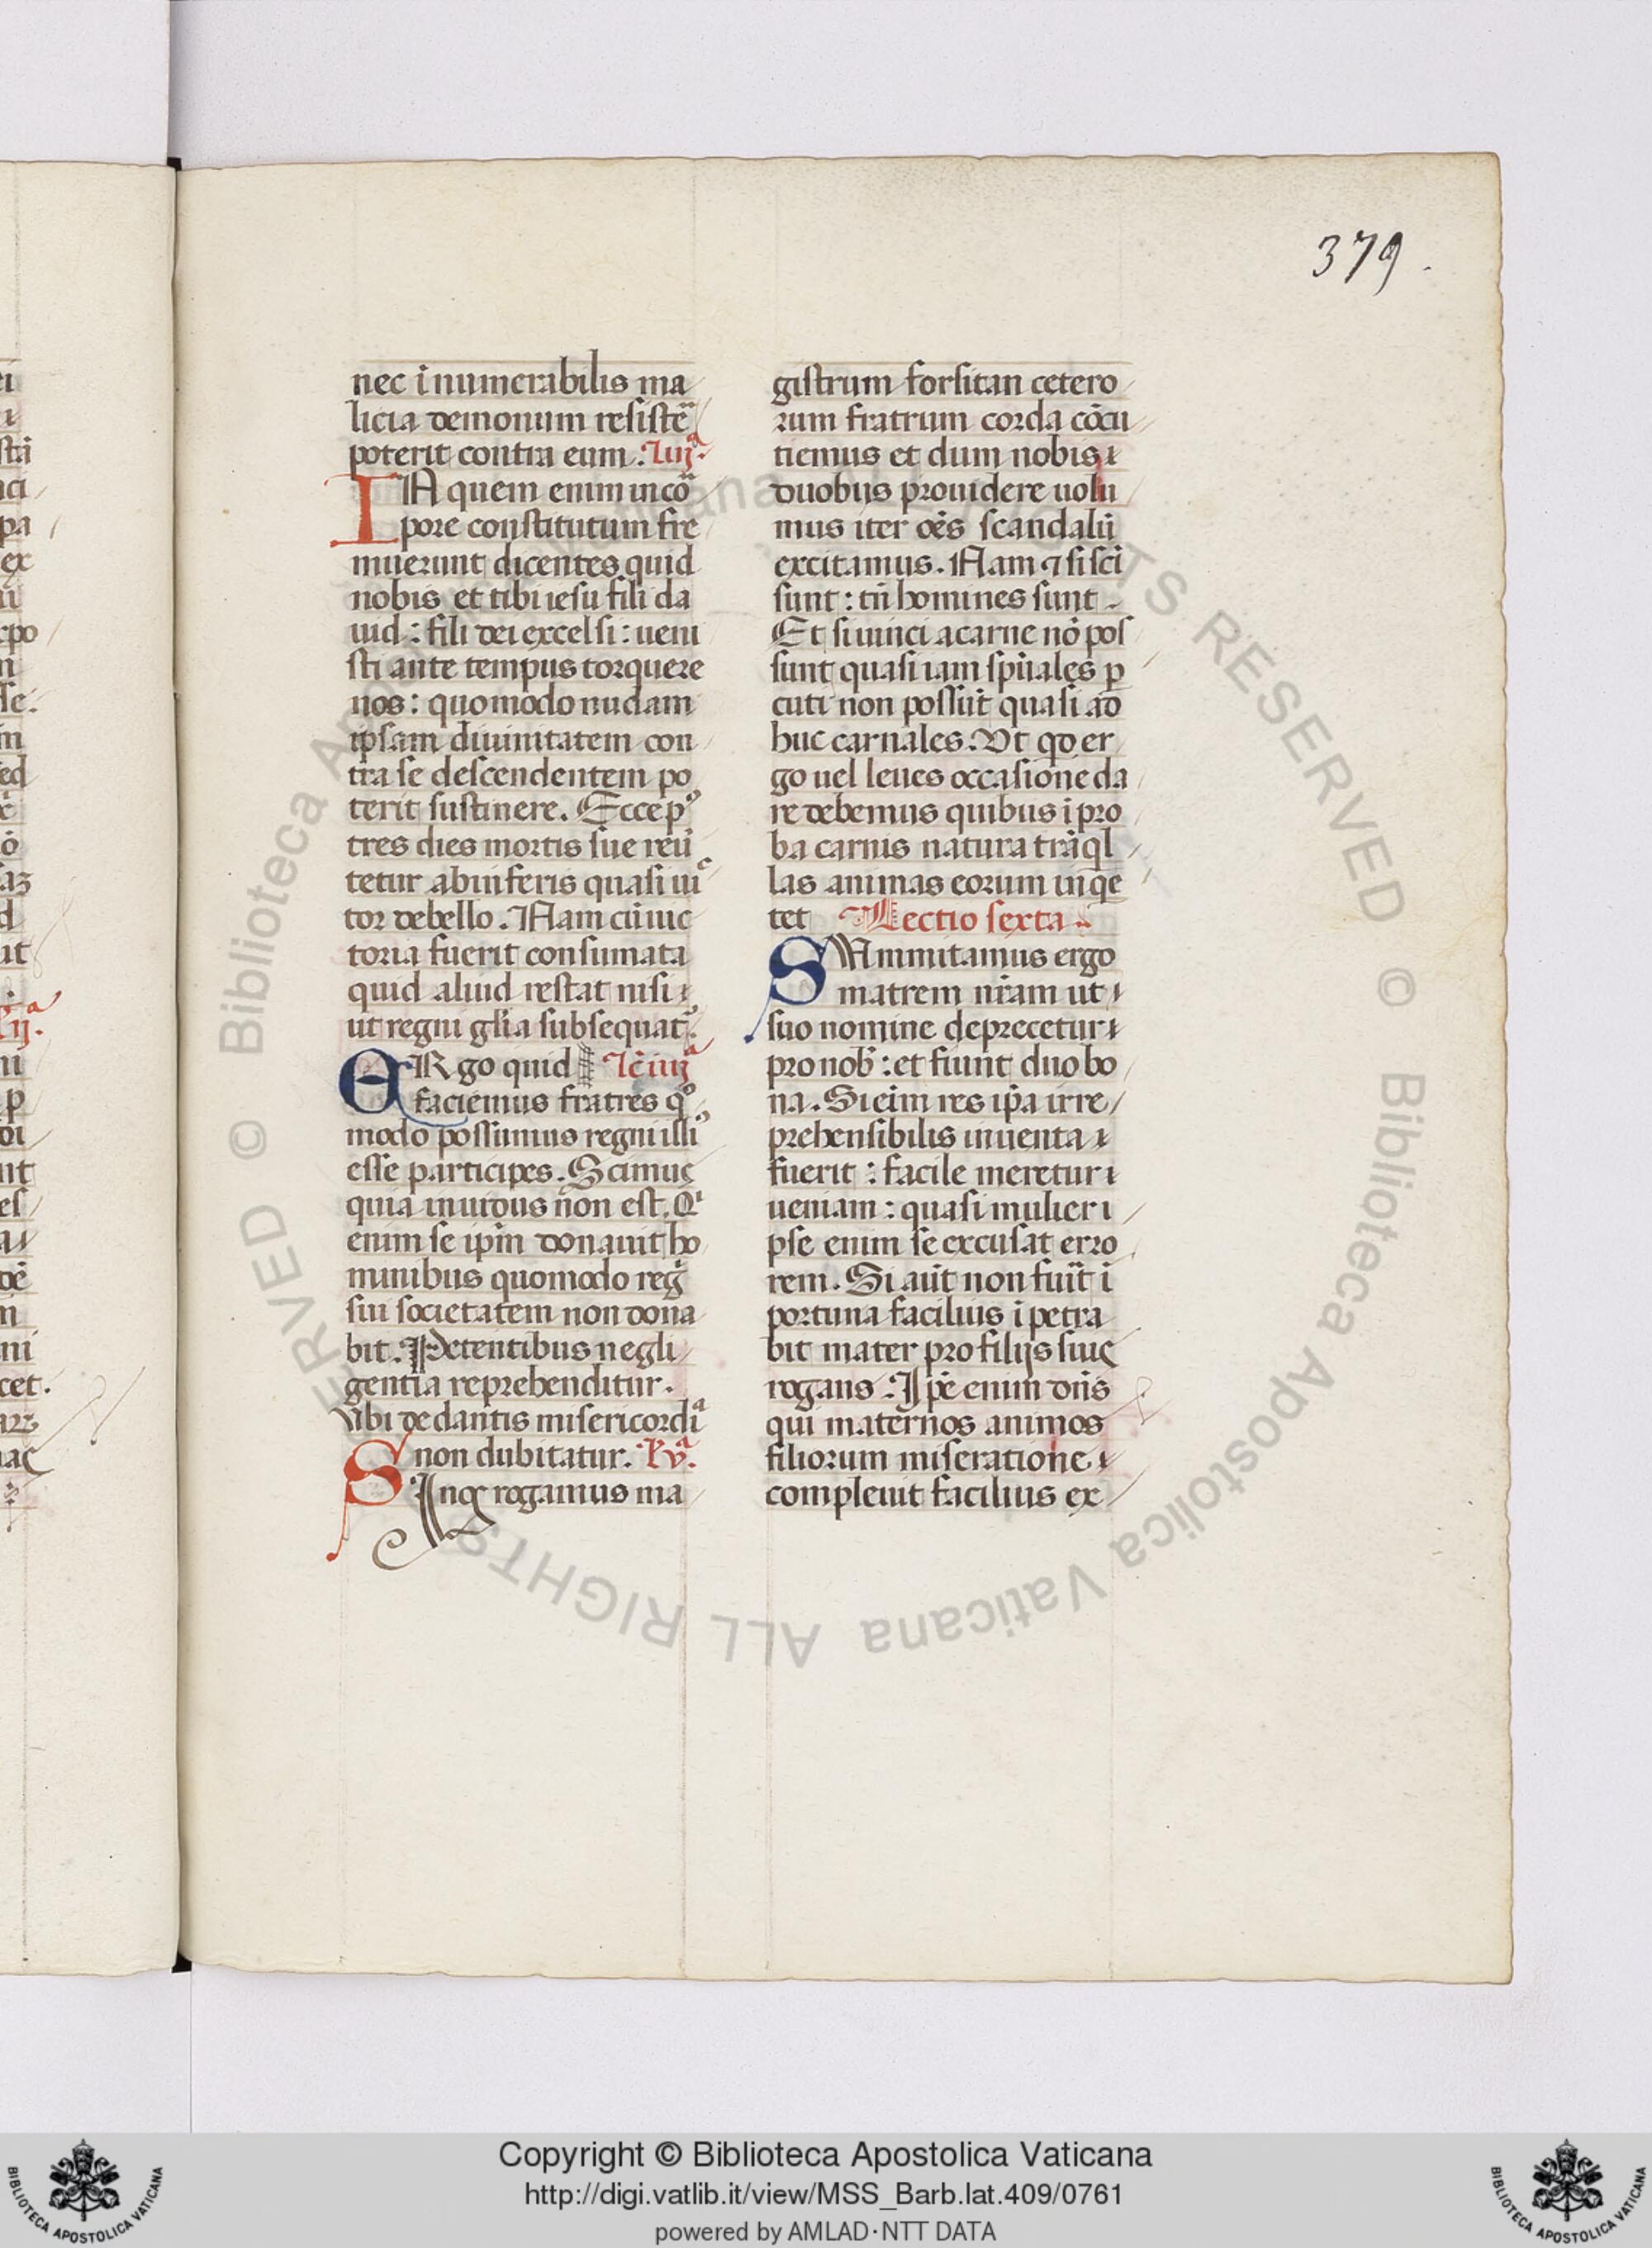 379.
nec īnumerabilis ma
licia demonum resistē
poterit contra eum. Iiijª.
INquem enim incō
pore constitutum fre
muerunt dicentes quid
nobis et tibi iesu fili da
uid: fili dei excelsi: ueni
sti ante tempus torquere
nos: quomodo nudam
ipsam diuinitatem con
tra se descendentem po
terit sustinere. Ecce pº
tres dies mortis sue reū
tetur ab inferis quasi uic
tor de bello. Nam cū uic
toria fuerit consumata
quid aliud restat nisi
ut regni gl̄ia subsequat᷑.
ERgo quid lc̄ iiijª
faciemus fratres qº
modo possumus regni illiº
esse participes. Scimus
quia inuidus non est. Qi
enim se ip̄m donauit ho
minibus quomodo reḡ
sui societatem non dona
bit. Petentibus negli
gentia reprehenditur.
Vbi de dantis misericordiª
non dubitatur. Lvª.
SInq; rogamus ma
gistrum forsitan cetero
rum fratrum corda cōcu
tiemus et dum nobis
duobus prouidere uolu
mus iter oēs scandalū
excitamus. Nam ⁊ si sc̄i
sunt: tn̄ homines sunt.
Et si uinci a carne nō pos
sunt quasi iam sp̄uales ꝑ
cuti non possūt quasi ad
huc carnales. Vt qd er
go uel leues occasione da
re debemus quibus īpro
ba carnis natura trāq̄l
las animas eorum inq̄e
tet Lectio sexta
SVmmitamus ergo
matrem nr̄am ut
suo nomine deprecetur
pro nob̄: et fiunt duo bo
na. Si eī̄m res ip̄a irre
prehensibilis inuenta
fuerit: facile meretur
ueniam: quasi mulier i
pse enim se excusat erro
rem. Si aūt non fuīt ī
portuna facilius īpetra
bit mater pro filijs suis
rogans. Ip̄e enim dn̄s
qui maternos animos
filiorum miseratione
compleuit facilius ex
Copyright © Biblioteca Apostolica Vaticana
http://digi.vatlib.it/view/MSS_Barb.lat.409/0761
powered by AMLAD·NTT DATA